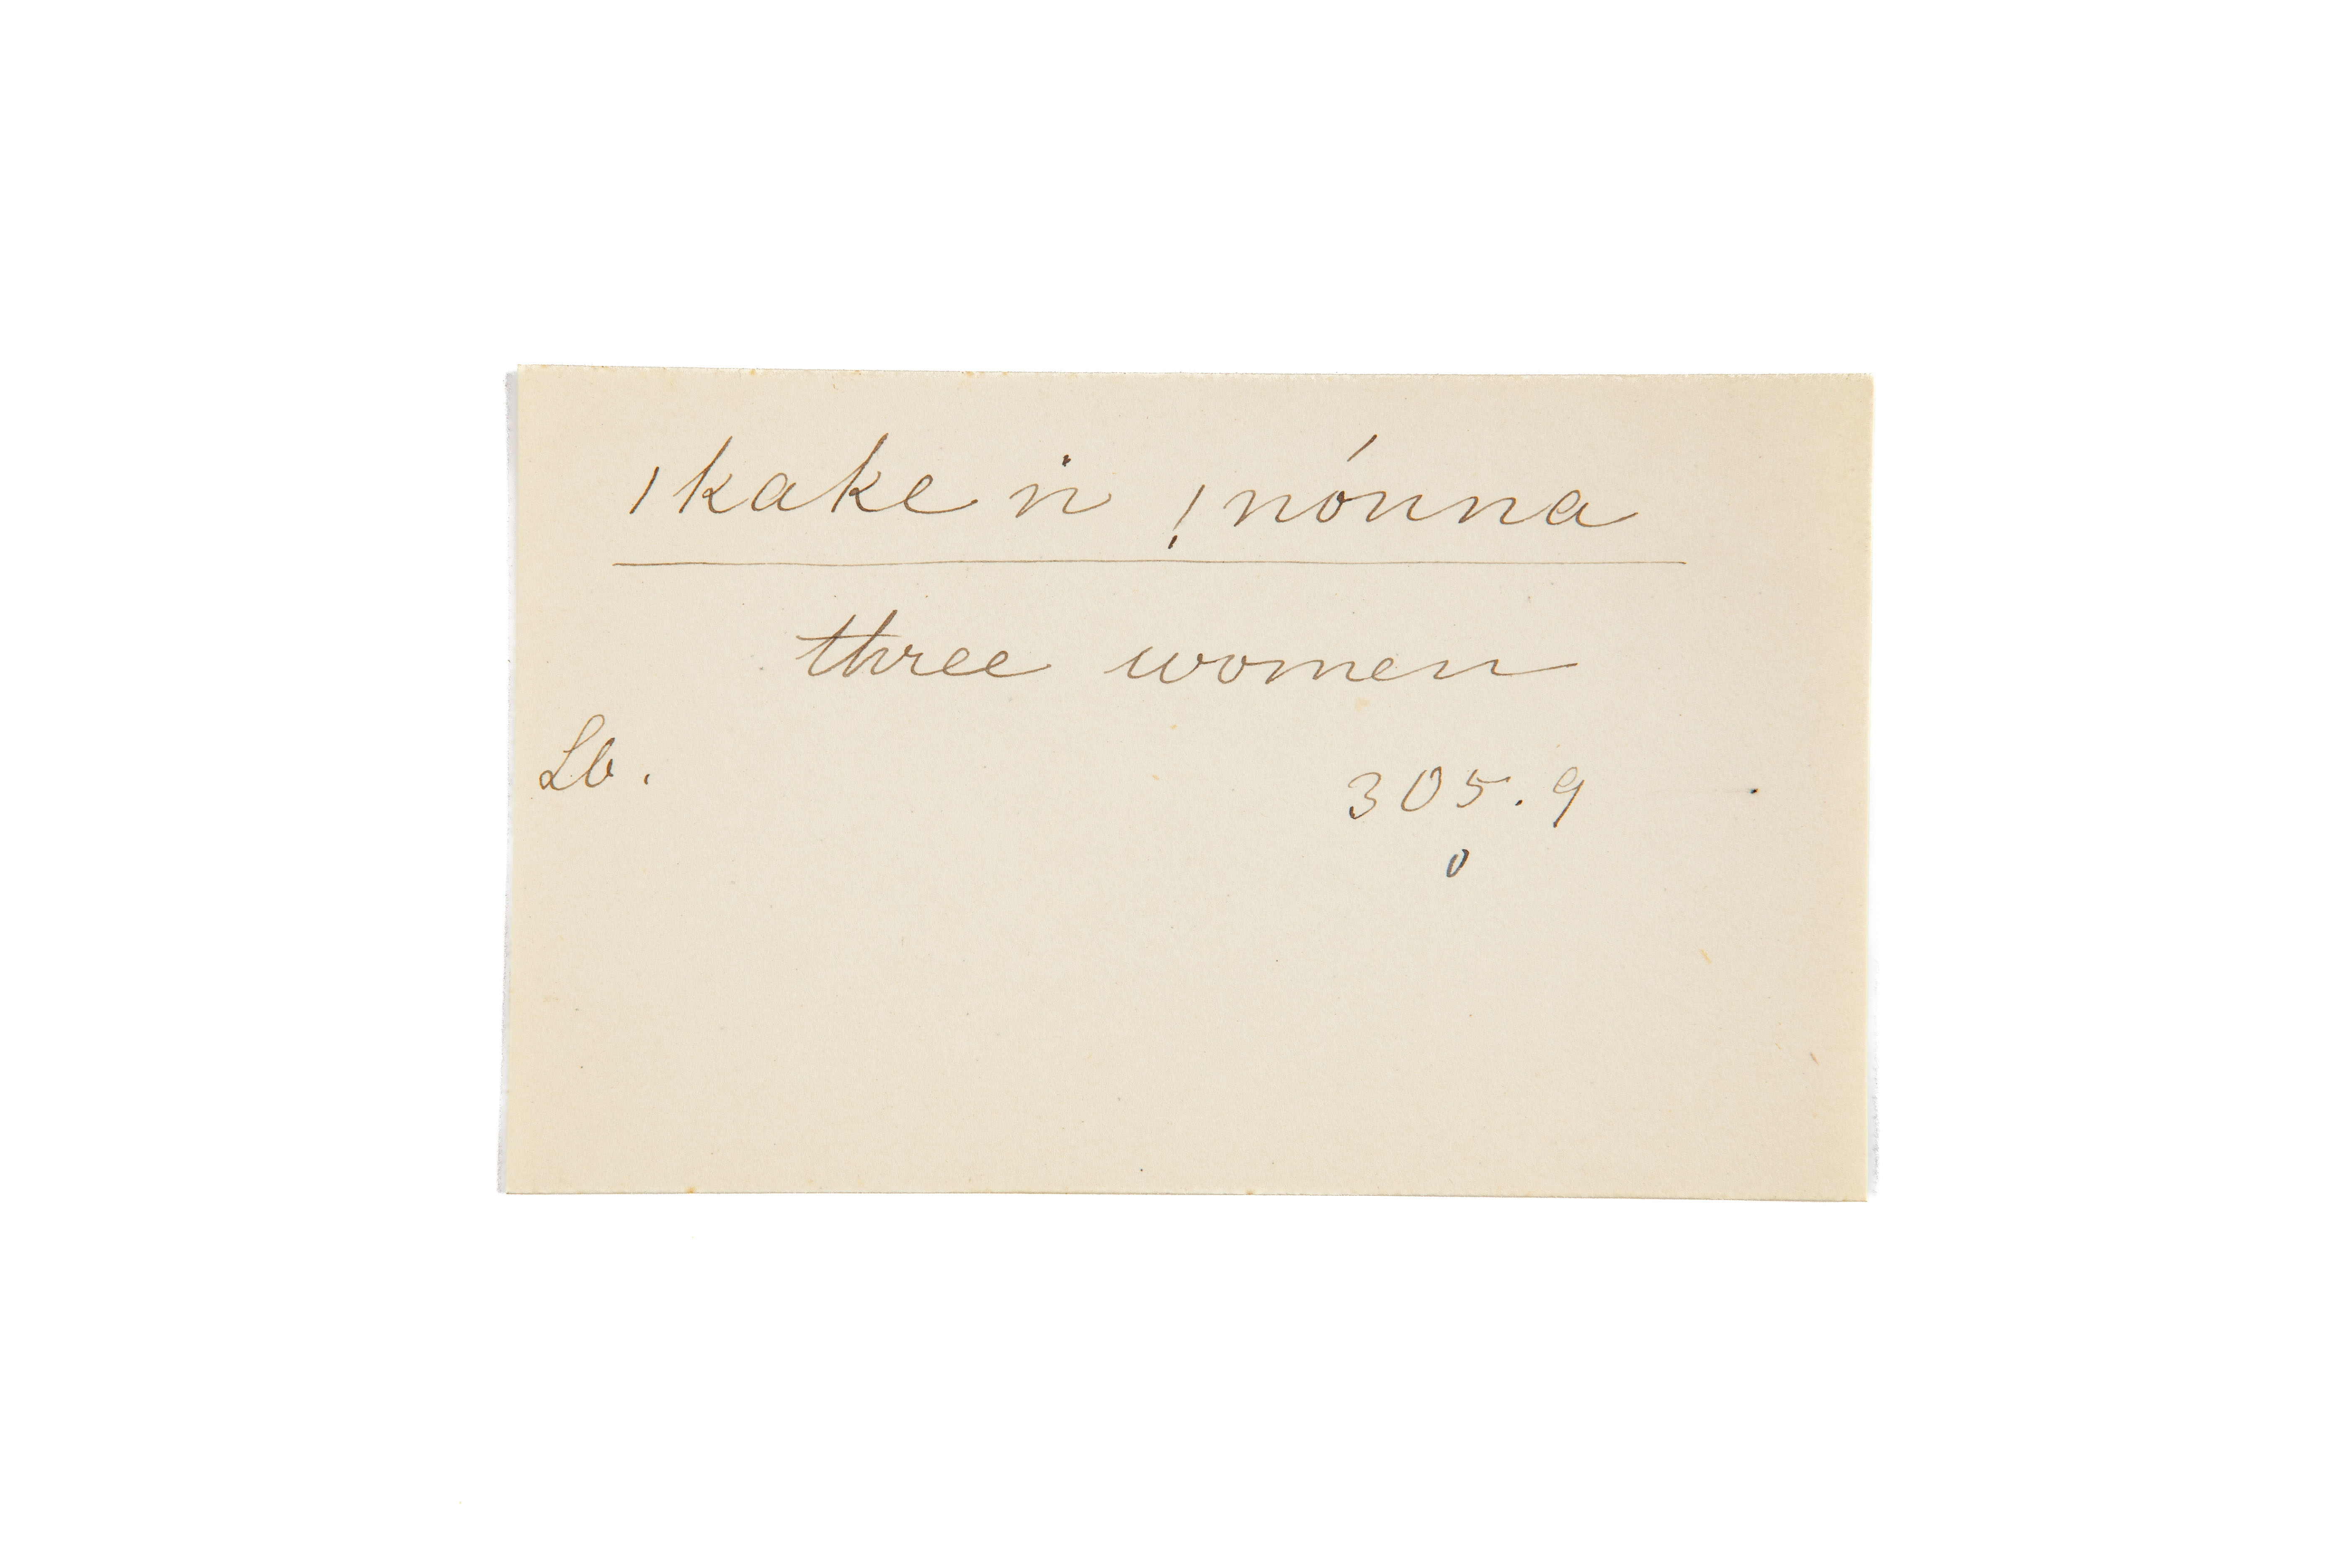 ǀkake ṅ ǃnónna
three women
Lb. 305.9
0